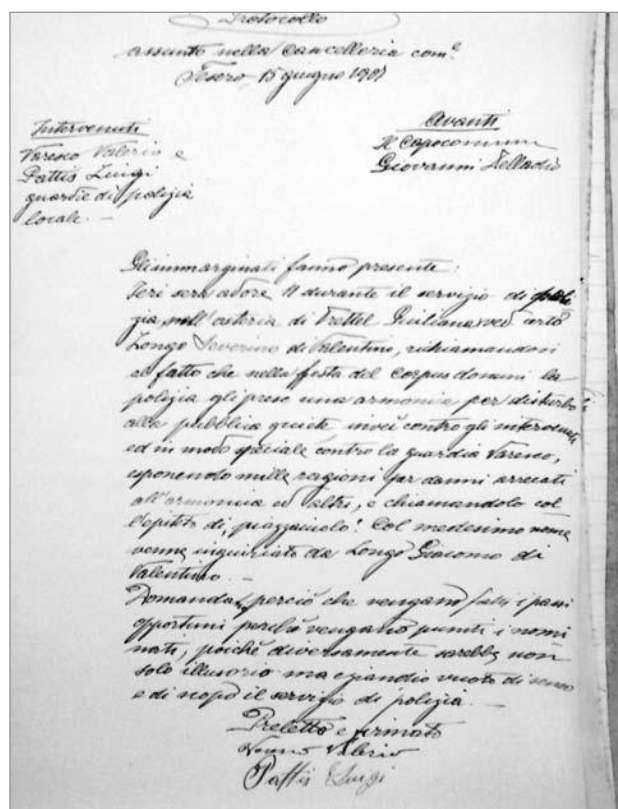 Protocollo
assunto nella Cancelleria com.e
Tesero, 15 giugno 1901
Intervenuti
Varesco Valerio e
Pattis Luigi
guardie di polizia
locale. —
Avanti
Il Capocomune
Giovanni Delladio
Gl'immarginati fanno presente:
Ieri sera ad ore 11 durante il servizio di poli
zia, nell'osteria di Trettel Giuliana certo
Longo Severino di Valentino, richiamandosi
al fatto che nella festa del Corpus domini la
polizia gli prese una armonica per disturbo
alla pubblica quiete, inveì contro gli intervenuti
ed in modo speciale contro la guardia Varesco,
esponendo mille ragioni per danni arrecati
all'armonica ed altri, e chiamandolo col
l'epiteto di "piazzaiuolo". Col medesimo nome
venne ingiuriato da Longo Giacomo di
Valentino. —
Domandasi perciò che vengano fatti i passi
opportuni perchè vengano puniti i nomi
nati, poichè diversamente sarebbe non
solo illusorio ma eziandio vuoto di senso
e di scopo il servizio di polizia. —
Preletto e firmato
Valerio
Pattis Luigi